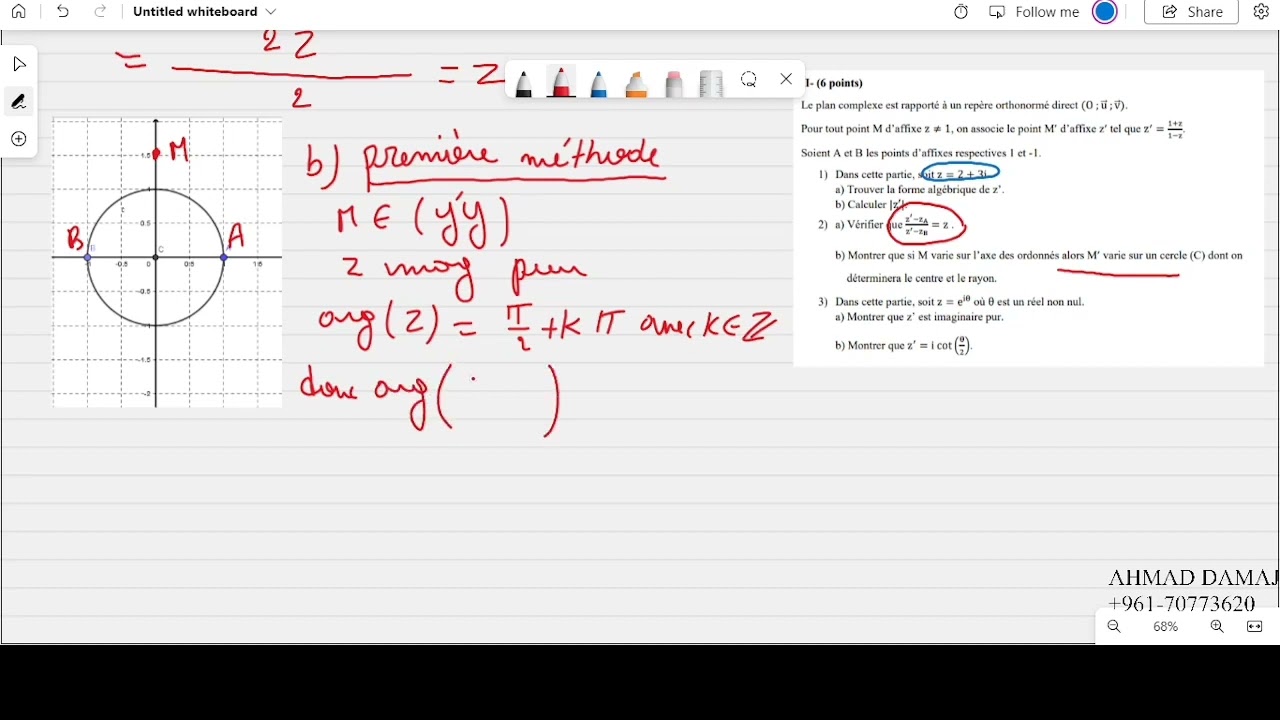 Untitled whiteboard
Follow me
Share
= 2 Z / 2 = Z
b) première méthode
M ∈ (y'y)
Z imag pur
arg(Z) = π/2 + K π avec K ∈ ℤ
donc arg( )
M
B
A
1.5
1
0.5
-1 -0.5 0 0.5 1 1.5
-0.5
-1
-1.5
-2
I- (6 points)
Le plan complexe est rapporté à un repère orthonormé direct (O ; u⃗ ; v⃗).
Pour tout point M d'affixe z ≠ 1, on associe le point M' d'affixe z' tel que z' = (1+z)/(1−z).
Soient A et B les points d'affixes respectives 1 et -1.
1) Dans cette partie, soit z = 2 + 3i
a) Trouver la forme algébrique de z'.
b) Calculer |z'|.
2) a) Vérifier que (z'−z_A)/(z'−z_B) = z .
b) Montrer que si M varie sur l'axe des ordonnés alors M' varie sur un cercle (C) dont on
déterminera le centre et le rayon.
3) Dans cette partie, soit z = e^{iθ} où θ est un réel non nul.
a) Montrer que z' est imaginaire pur.
b) Montrer que z' = i cot(θ/2).
AHMAD DAMAJ
+961-70773620
68%